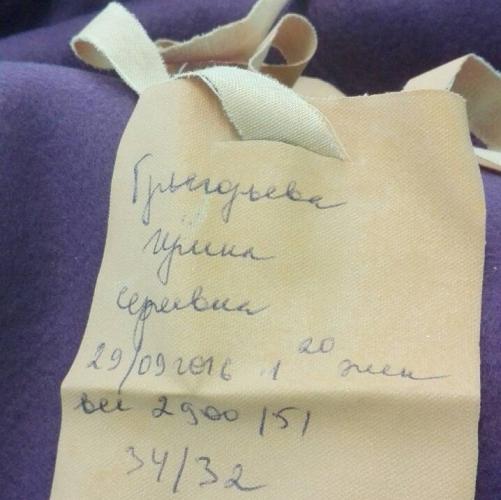 Ирина
Сергеевна
29/09 2016 1 20 жен
вес 2900 /51
34/32